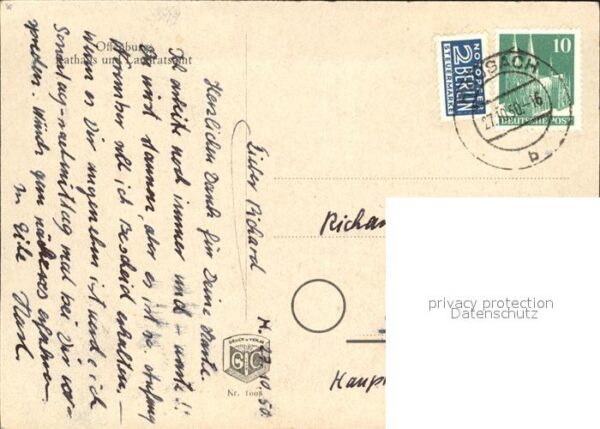 Offenburg
Rathaus und Landratsamt
M. 27.10.50
Lieber Richard
Herzlichen Dank für Deine Karte.
Ich arbeite noch immer und warte!!
Du wirst staunen, aber es ist so. Anfang
November soll ich Bescheid erhalten.
Wenn es Dir angenehm ist werde ich
Sonntag-nachmittag mal bei Dir vor-
sprechen. Würde gern näheres erfahren.
In Eile Karl.
NOTOPFER
2 BERLIN
STEUERMARKE
10
DEUTSCHE POST
27.10.50.-16
b
Richa
Haup
DRUCK u. VERLAG
Nr. 1008
privacy protection
Datenschutz